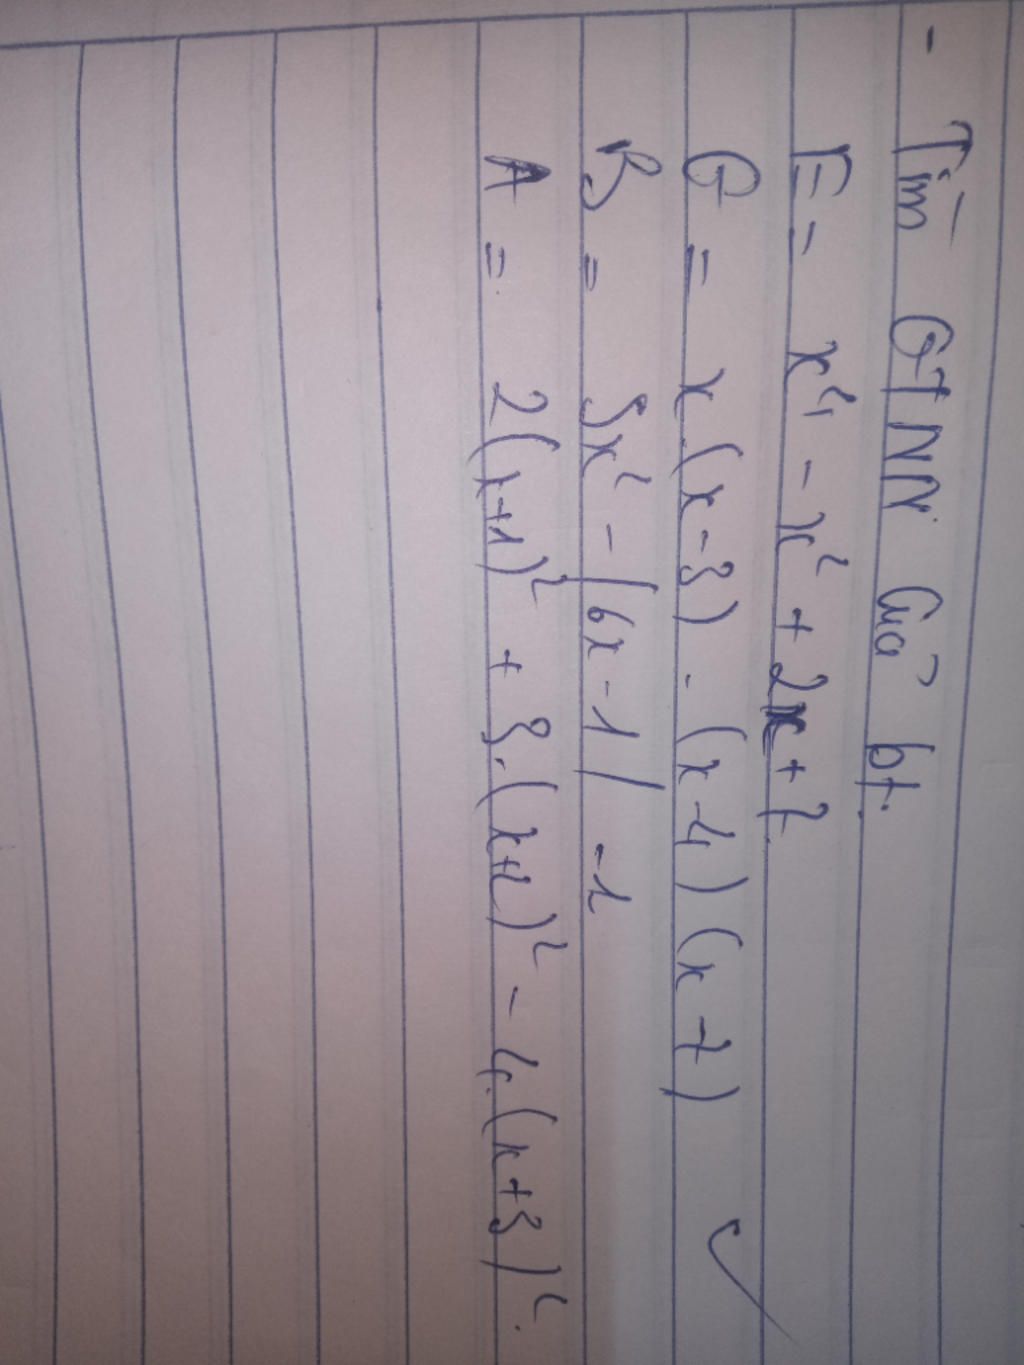 - Tìm GTNN của bt.
E = x⁴ - x² + 2x + 7.
G = x.(x-3).(x-4)(x-7)
B = 9x² - |6x-1| -1
A = 2(x+1)² + 3.(x+2)² - 4.(x+3)².